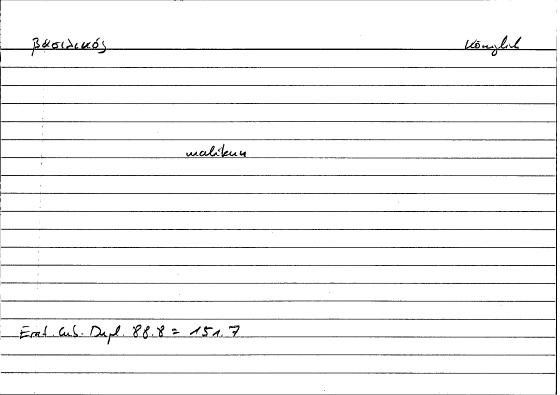 βασιλικός Königlich
malikun
Erat. Cub. Dupl. 88.8 = 151.7